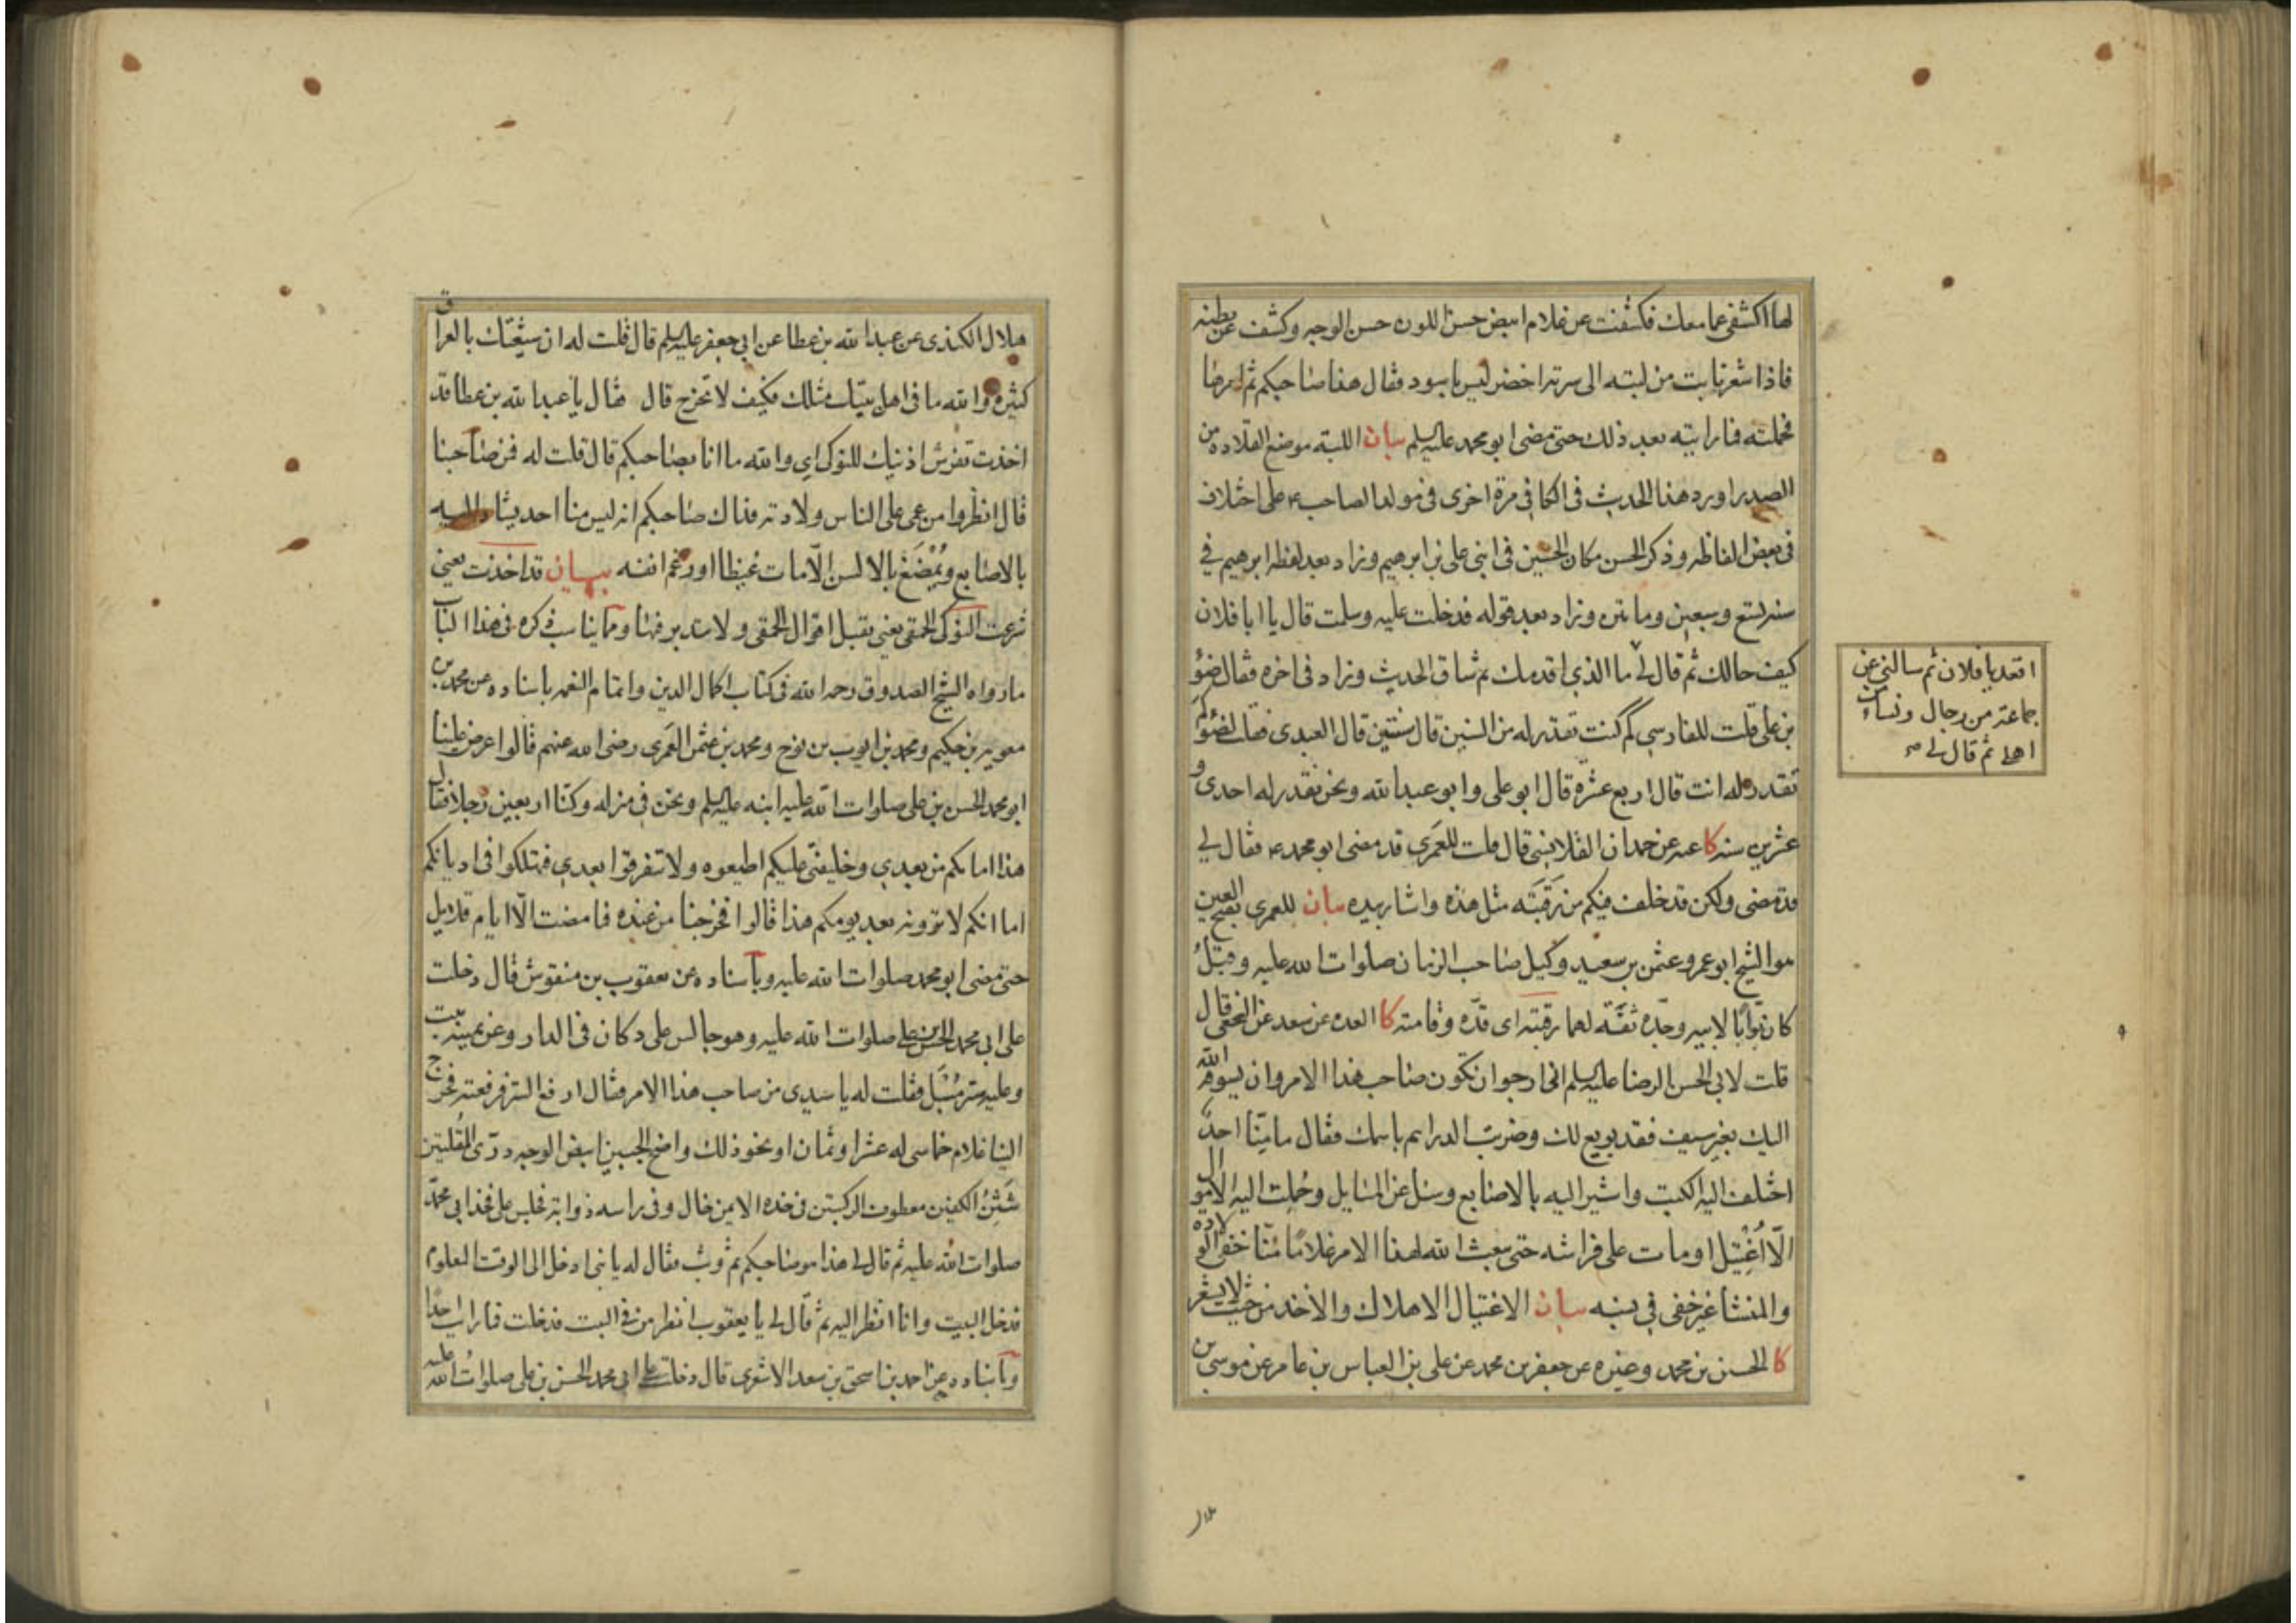 لها اكشفى عما معك فكشفت عن غلام ابيض حسن اللون حسن الوجه وكشف عن بطنه
فاذا شعر نابت من لبته الى سرته اخضر ليس باسود فقال هذا صاحبكم ثم امرها
فحملته فما رايته بعد ذلك حتى مضى ابو محمد عليه السلم بيان اللبة موضع القلادة من
الصدر اورد هذا الحديث فى الكافى مرة اخرى فى مولد الصاحب ع على اختلاف
فى بعض الفاظه وذكر الحسن مكان الحسين فى ابنى على بن ابرهيم وزاد بعد لفظه ابرهيم فى
سنه تسع وسبعين ومائتين وزاد بعد قوله فدخلت عليه وسلمت قال يا ابا فلان
كيف حالك ثم قال لى ما الذى اقدمك ثم ساق الحديث وزاد فى اخره فقال ضوء
بن على قلت للفارسى كم كنت تقدر له من السنين قال سنتين قال العبدى فقلت لضوء كم
تقدر له انت قال اربع عشرة قال ابو على وابو عبد الله ونحن نقدر له احدى و
عشرين سنه كا عنه عن حمدان القلانسى قال قلت للعمرى قد مضى ابو محمد ع فقال لى
قد مضى ولكن قد خلف فيكم من رقبته مثل هذه واشار بيده بيان للعمرى بفتح العين
هو الشيخ ابو عمرو عثمن بن سعيد وكيل صاحب الزمان صلوات الله عليه وقبل
كان بوابا لابيه وجده ثقة لهما رقبته اى قده وقامته كا العدة عن سعد عن النخعى قال
قلت لابى الحسن الرضا عليه السلم انى ارجو ان تكون صاحب هذا الامر وان يسوقه الله
اليك بغير سيف فقد بويع لك وضربت الدراهم باسمك فقال ما منا احد
اختلف اليه الكتب واشير اليه بالاصابع وسئل عن المسايل وحملت اليه الاموال
الا اغتيل او مات على فراشه حتى يبعث الله لهذا الامر غلاما منا خفى الولادة
والمنشا غير خفى فى نسبه بيان الاغتيال الاهلاك والاخذ من حيث لا يشعر
كا الحسين بن محمد وغيره عن جعفر بن محمد عن على بن العباس بن عامر عن موسى بن
اقعد يا فلان ثم سالنى عن
جماعة من رجال ونساء من
اهلى ثم قال لى صح
هلال
هلال الكندى عن عبد الله بن عطا عن ابى جعفر عليه السلم قال قلت له ان شيعتك بالعراق
كثيرة والله ما فى اهل بيتك مثلك فكيف لا تخرج قال فقال يا عبد الله بن عطا قد
اخذت تفرش اذنيك للنوكى اى والله ما انا بصاحبكم قال قلت له فمن صاحبنا
قال انظروا من عمى على الناس ولادته فذاك صاحبكم انه ليس منا احد يشار اليه
بالاصابع ويمضغ بالالسن الا مات غيظا او رغم انفه بيان قد اخذت يعنى
شرعت النوكى الحمقى يعنى تقبل اقوال الحمقى ولا تتدبر فيها ومما يناسب ذكره فى هذا الباب
ما رواه الشيخ الصدوق رحمه الله فى كتاب اكمال الدين واتمام النعمه باسناده عن محمد بن
معويه بن حكيم ومحمد بن ايوب بن نوح ومحمد بن عثمن العمرى رضى الله عنهم قالوا عرض علينا
ابو محمد الحسن بن على صلوات الله عليه ابنه عليه السلم ونحن فى منزله وكنا اربعين رجلا فقال
هذا امامكم من بعدى وخليفتى عليكم اطيعوه ولا تتفرقوا بعدى فتهلكوا فى اديانكم
اما انكم لا ترونه بعد يومكم هذا قالوا فخرجنا من عنده فما مضت الا ايام قلايل
حتى مضى ابو محمد صلوات الله عليه وباسناده عن يعقوب بن منقوش قال دخلت
على ابى محمد الحسن بن على صلوات الله عليه وهو جالس على دكان فى الدار وعن يمينه بيت
وعليه ستر مسبل فقلت له يا سيدى من صاحب هذا الامر فقال ارفع الستر فرفعته فخرج
الينا غلام خماسى له عشر او ثمان او نحو ذلك واضح الجبين ابيض الوجه درى المقلتين
شثن الكفين معطوف الركبتين فى خده الايمن خال وفى راسه ذوابة فجلس على فخذ ابى محمد
صلوات الله عليه ثم قال لى هذا هو صاحبكم ثم وثب فقال له يا بنى ادخل الى الوقت المعلوم
فدخل البيت وانا انظر اليه ثم قال لى يا يعقوب انظر من فى البيت فدخلت فما رايت احدا
وباسناده عن احمد بن اسحق بن سعد الاشعرى قال دخلت على ابى محمد الحسن بن على صلوات الله عليه